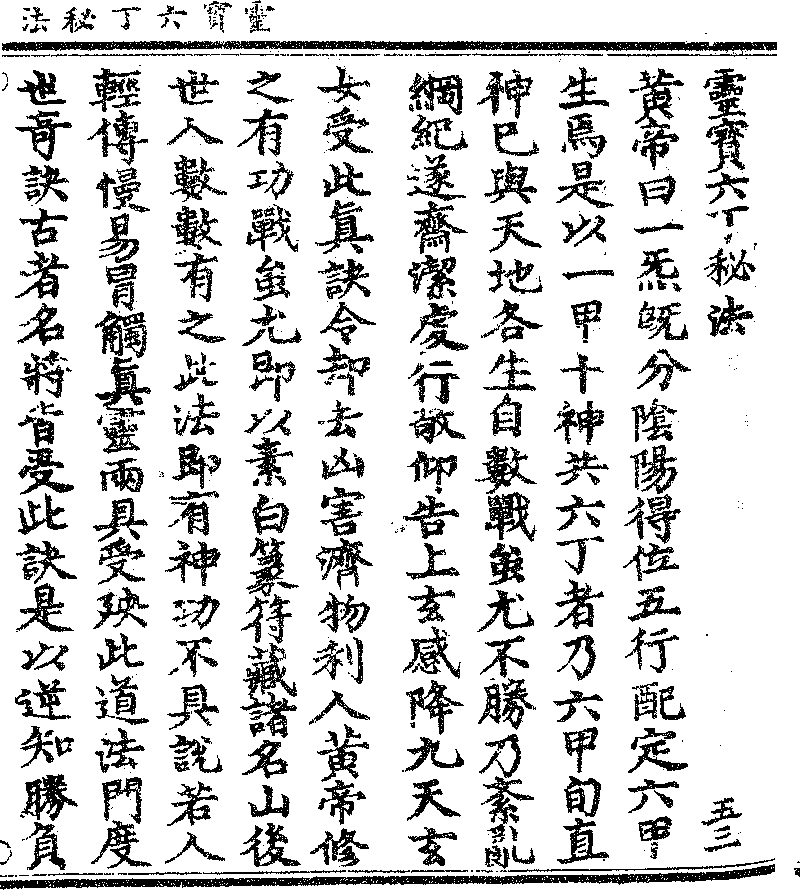 靈寶六丁秘法
靈寶六丁秘法
五三
黃帝曰一炁旣分陰陽得位五行配定六甲
生焉是以一甲十神共六丁者乃六甲旬直
神巳與天地各生自數戰蚩尤不勝乃紊亂
綱紀遂齋潔虔行敬仰告上玄感降九天玄
女受此眞訣令却去凶害濟物利人黃帝修
之有功戰蚩尤卽以素白篆符藏諸名山後
世人數數有之此法卽有神功不具說若人
輕傳慢易冒觸眞靈兩具受殃此道法門度
世奇訣古者名將皆受此訣是以逆知勝負